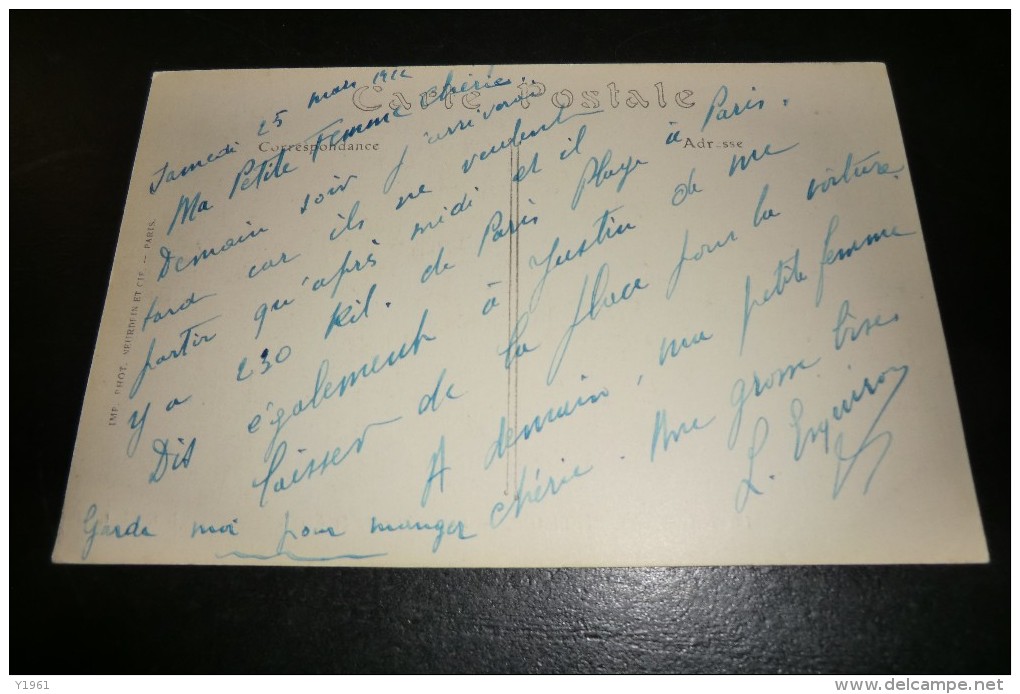 Carte Postale
Correspondance
Adresse
Samedi 25 mars 1912
Ma Petite Femme chérie..
Demain soir j'arriverai
tard car ils ne veulent
partir qu'après midi et il
y a 230 kil. de Paris Plage à Paris.
Dis également à Justin de me
laisser de la place pour la voiture.
A demain, ma petite femme
chérie. Une grosse bises
L. Esquirroy
Garde moi pour manger
IMP. PHOT. NEURDEIN ET CIE. — PARIS.
Y1961
delcampe.net